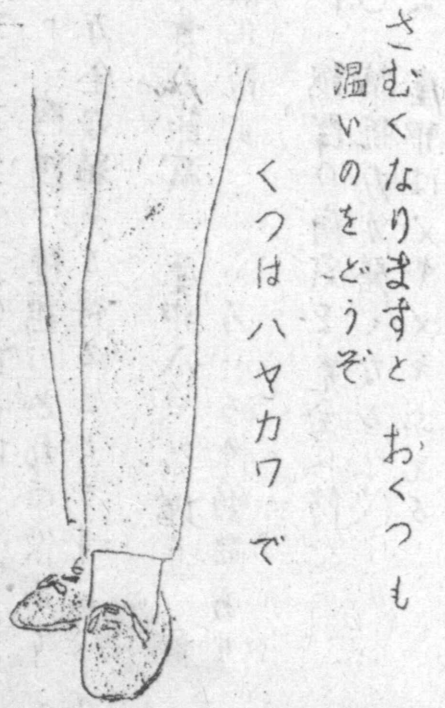 さむくなりますと おくつも
温いのをどうぞ
くつはハヤカワで